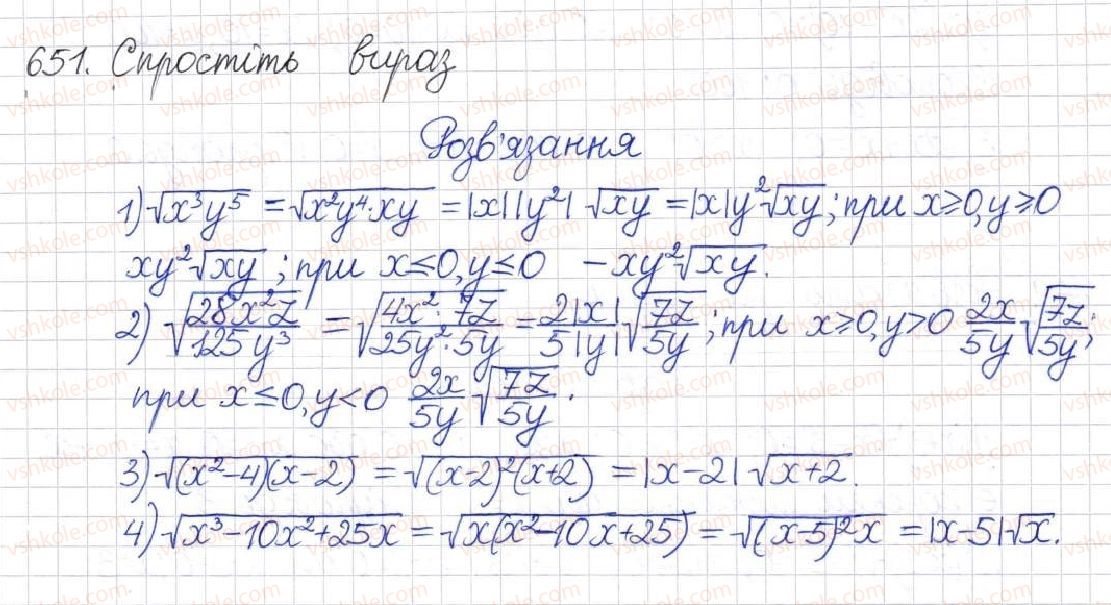 651. Спростіть вираз
Розв'язання
1) √(x³y⁵) = √(x²y⁴·xy) = |x||y²| √(xy) = |x|y²√(xy); при x≥0, y≥0
xy²√(xy); при x≤0, y≤0 −xy²√(xy).
2) √(28x²z/125y³) = √(4x²·7z/25y²·5y) = 2|x|/5|y| √(7z/5y); при x≥0, y>0 2x/5y √(7z/5y);
при x≤0, y<0 2x/5y √(7z/5y).
3) √((x²−4)(x−2)) = √((x−2)²(x+2)) = |x−2| √(x+2).
4) √(x³−10x²+25x) = √(x(x²−10x+25)) = √((x−5)²x) = |x−5|√x.